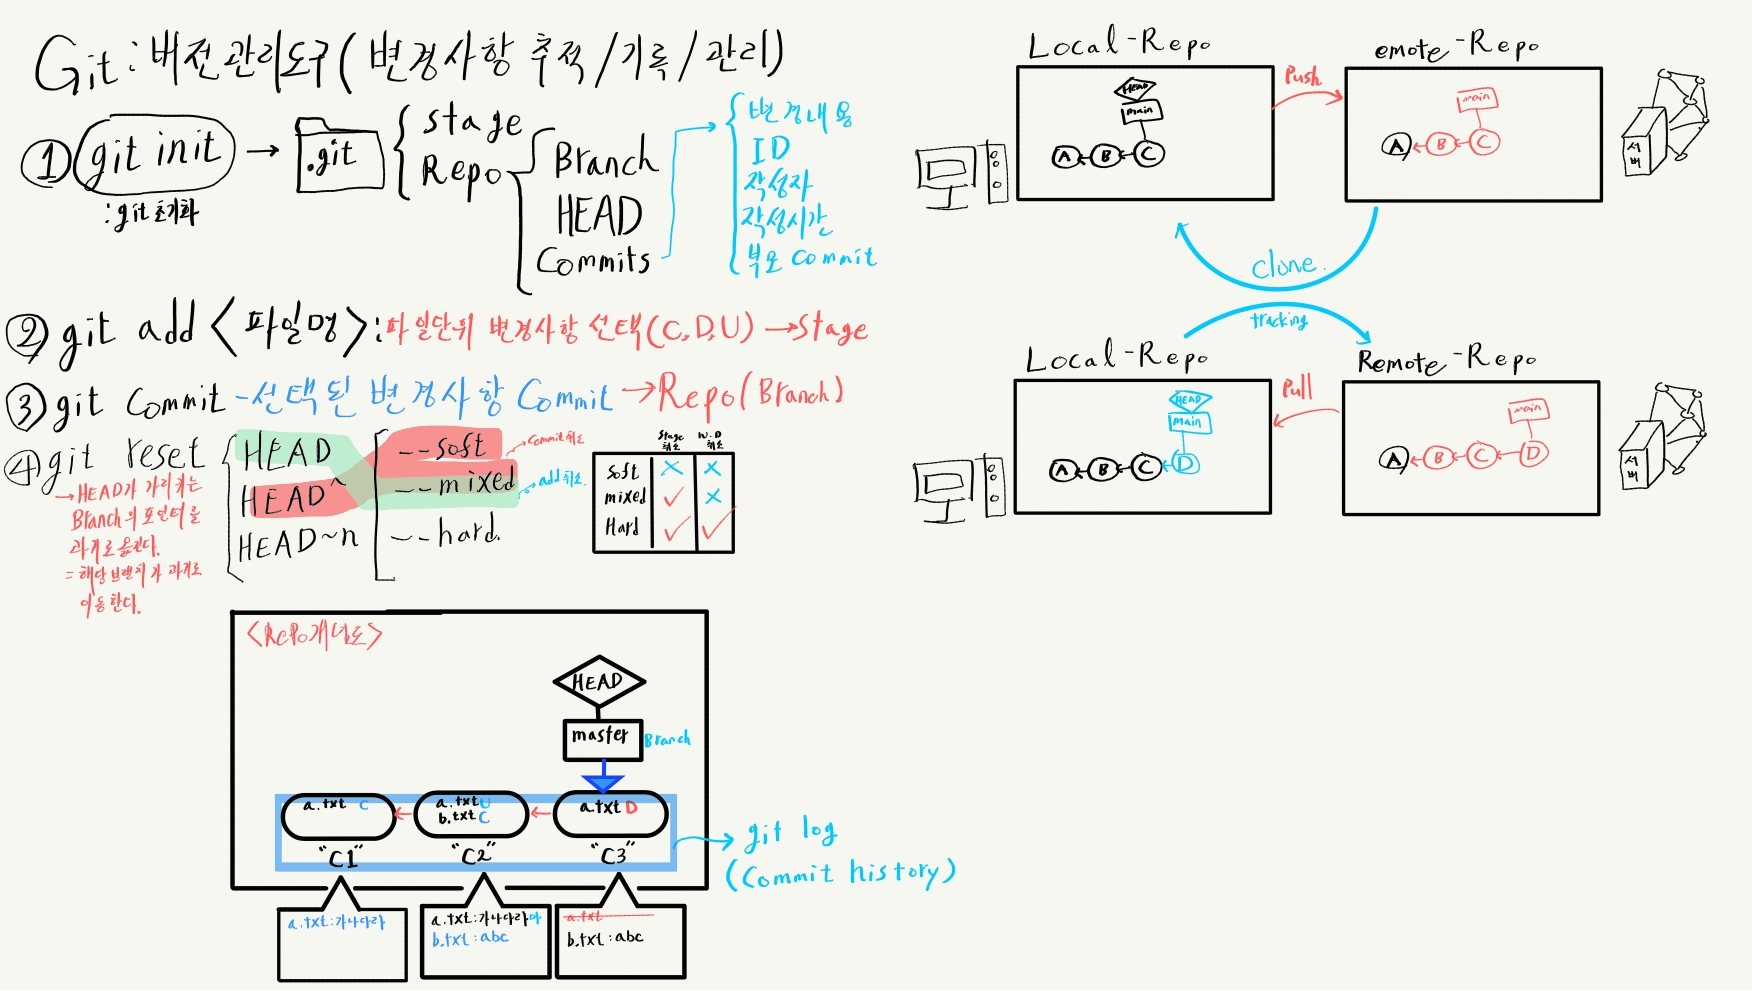 Git : 버전관리도구 ( 변경사항 추적 / 기록 / 관리 )
① git init → .git
: git 초기화
stage
Repo
Branch
HEAD
Commits
변경내용
ID
작성자
작성시간
부모 commit
② git add <파일명> : 파일단위 변경사항 선택(C, D, U) → Stage
③ git commit - 선택된 변경사항 Commit → Repo ( Branch )
④ git reset
HEAD
HEAD^
HEAD~n
--soft → Commit 취소
--mixed → add 취소.
--hard.
→ HEAD가 가리키는
Branch의 포인터를
과거로 옮긴다.
= 해당 브랜치가 과거로
이동한다.
Stage 취소
W.D 취소
soft X X
mixed ✓ X
Hard ✓ ✓
<Repo개념도>
HEAD
master Branch
a.txt C
a.txt U
b.txt C
a.txt D
"C1" "C2" "C3"
→ git log
(Commit history)
a.txt : 가나다라
a.txt : 가나다라마
b.txt : abc
a.txt
b.txt : abc
Local-Repo
HEAD
main
A ← B ← C
Push
emote-Repo
main
A ← B ← C
서버
clone.
tracking
Local-Repo
HEAD
main
A ← B ← C ← D
Pull
Remote-Repo
main
A ← B ← C ← D
서버